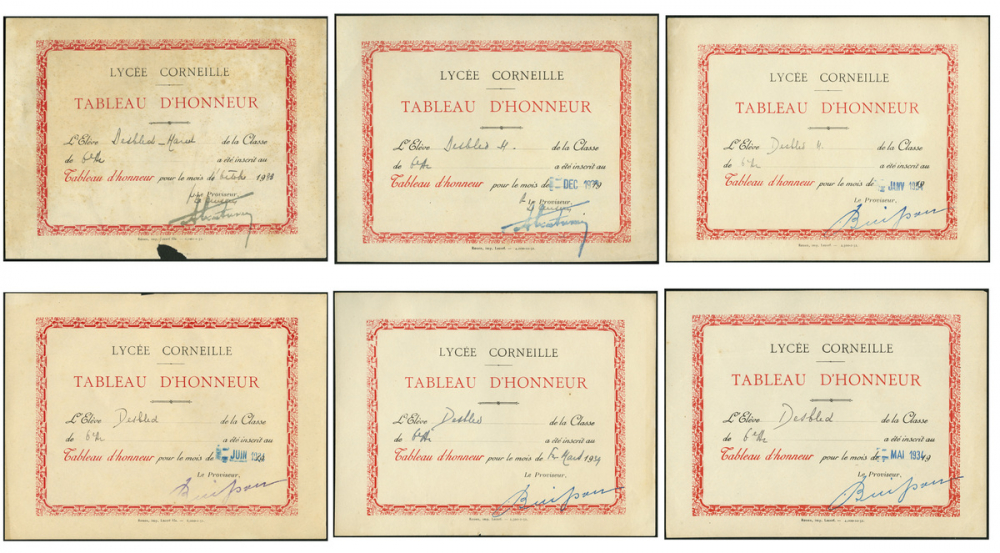 LYCÉE CORNEILLE
TABLEAU D'HONNEUR
L'Élève Desbled Marcel de la Classe
de 6e A2 a été inscrit au
Tableau d'honneur pour le mois de Octobre 193
Le Proviseur,
LYCÉE CORNEILLE
TABLEAU D'HONNEUR
L'Élève Desbled M. de la Classe
de 6e a été inscrit au
Tableau d'honneur pour le mois de DEC 193
Le Proviseur,
LYCÉE CORNEILLE
TABLEAU D'HONNEUR
L'Élève Desbled M. de la Classe
de 6e a été inscrit au
Tableau d'honneur pour le mois de JANV 193
Le Proviseur,
LYCÉE CORNEILLE
TABLEAU D'HONNEUR
L'Élève Desbled de la Classe
de 6e a été inscrit au
Tableau d'honneur pour le mois de JUIN 193
Le Proviseur,
LYCÉE CORNEILLE
TABLEAU D'HONNEUR
L'Élève Desbled de la Classe
de 6e a été inscrit au
Tableau d'honneur pour le mois de Mars 1934
Le Proviseur,
LYCÉE CORNEILLE
TABLEAU D'HONNEUR
L'Élève Desbled de la Classe
de 6e a été inscrit au
Tableau d'honneur pour le mois de MAI 1934
Le Proviseur,